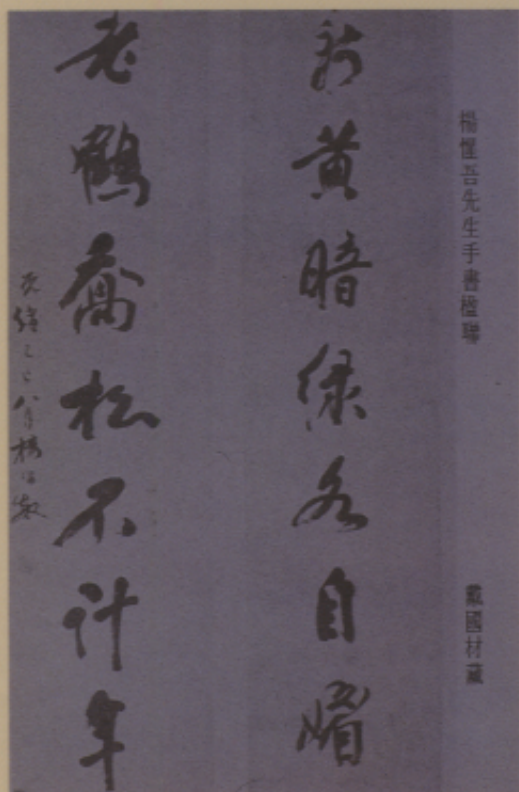 楊惺吾先生手書楹聯
戴國材藏
新黃暗綠各自媚
老鶴喬松不計年
光緒乙巳八月楊守敬